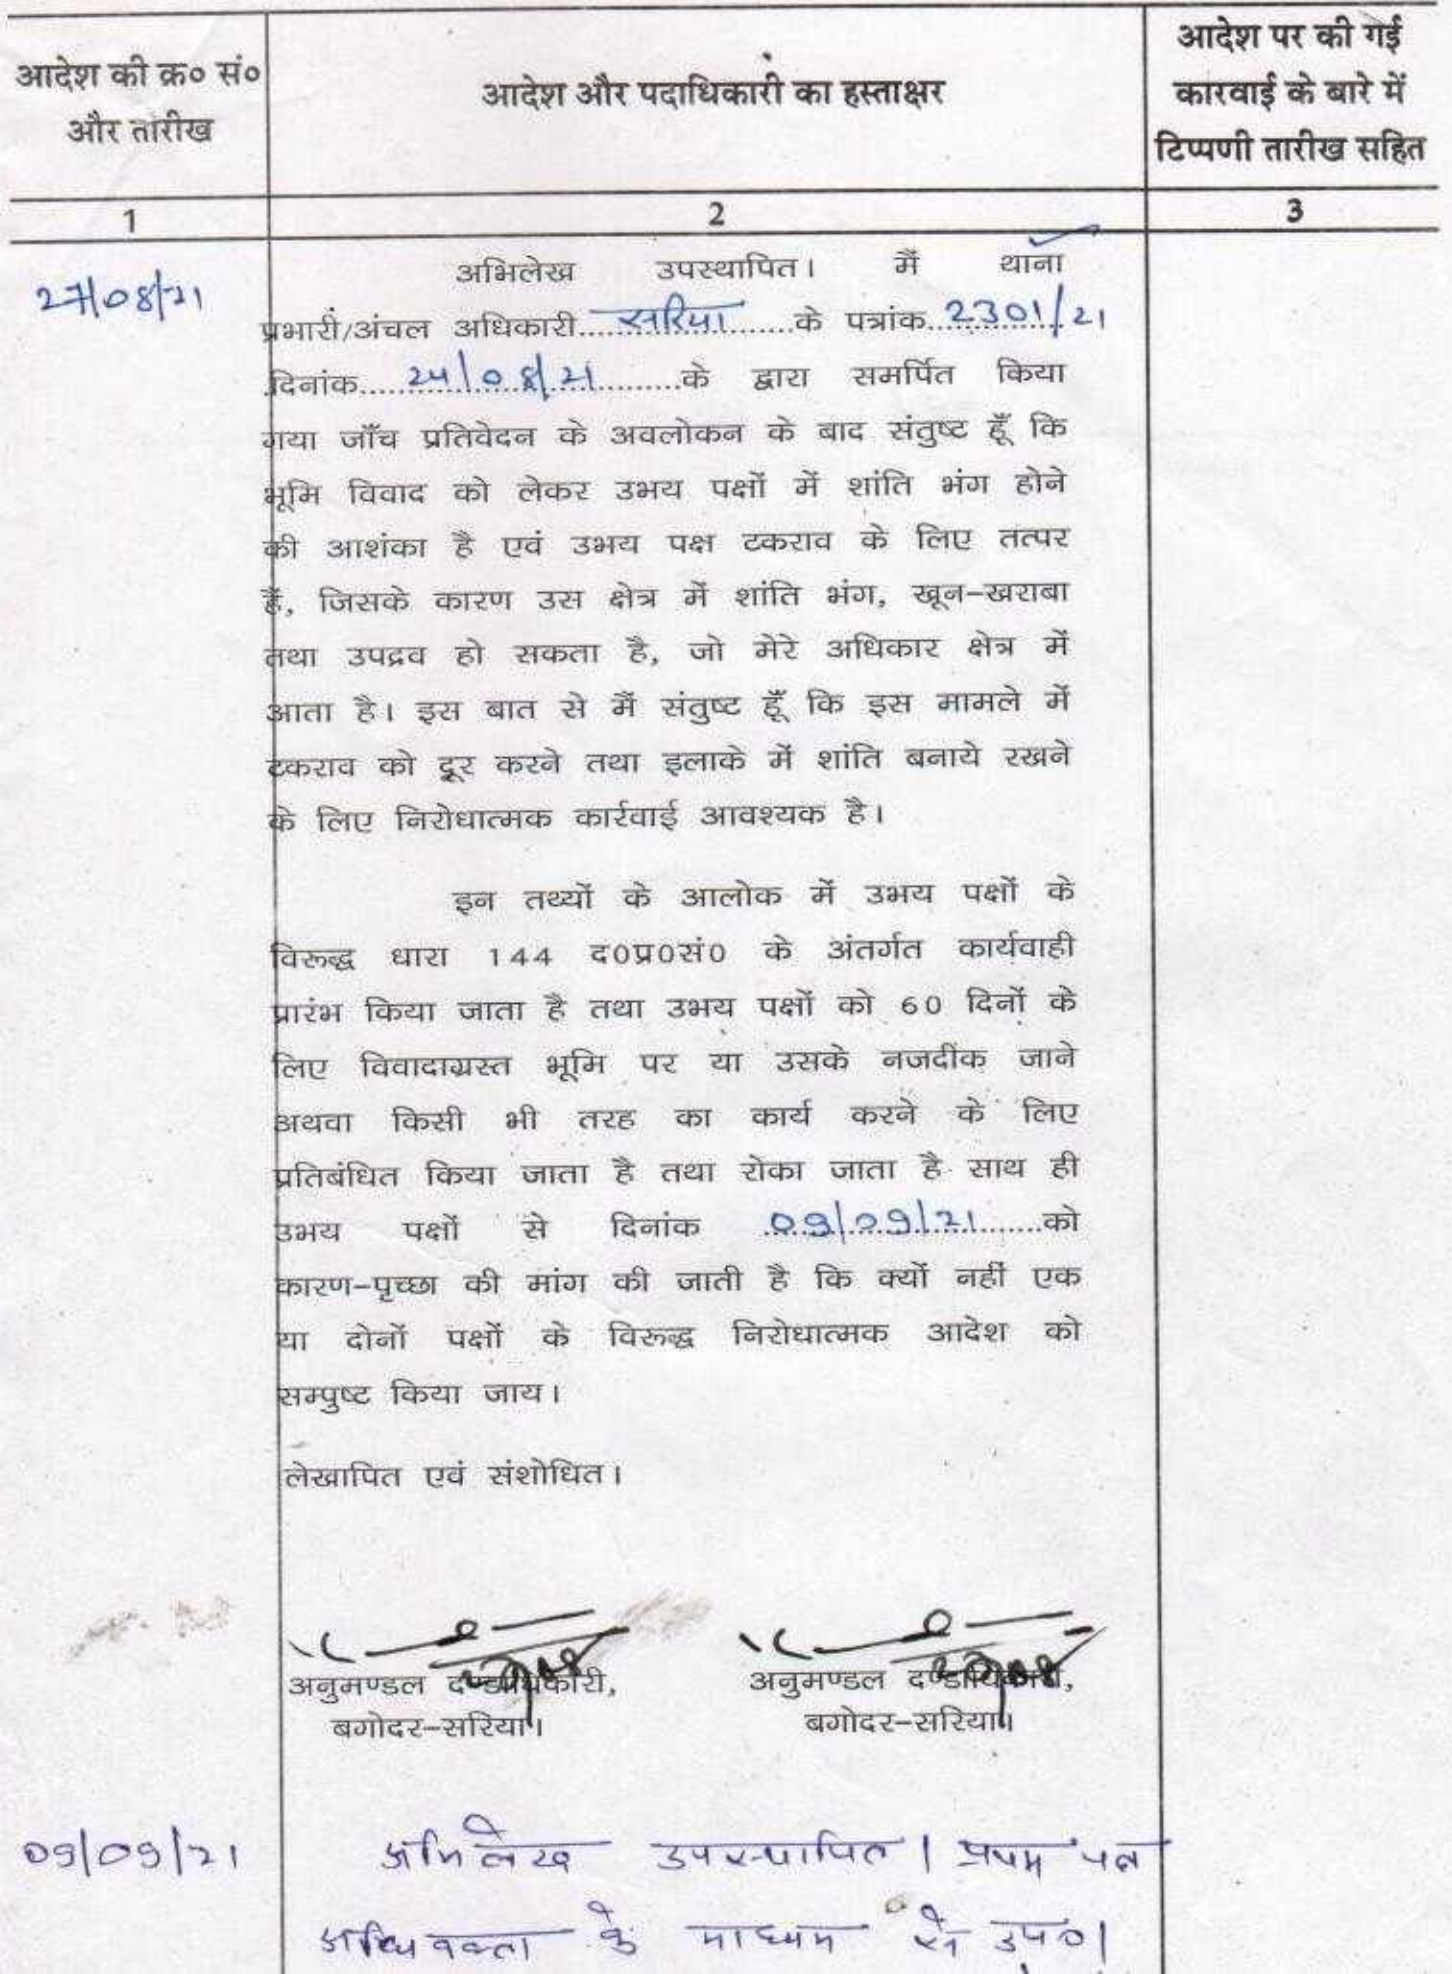 आदेश की क्र० सं०
और तारीख
आदेश और पदाधिकारी का हस्ताक्षर
आदेश पर की गई
कारवाई के बारे में
टिप्पणी तारीख सहित
1
2
3
27/08/21
अभिलेख उपस्थापित। मैं थाना
प्रभारी/अंचल अधिकारी.....सरिया.......के पत्रांक..2301/21
दिनांक.....24/08/21.........के द्वारा समर्पित किया
गया जाँच प्रतिवेदन के अवलोकन के बाद संतुष्ट हूँ कि
भूमि विवाद को लेकर उभय पक्षों में शांति भंग होने
की आशंका है एवं उभय पक्ष टकराव के लिए तत्पर
हैं, जिसके कारण उस क्षेत्र में शांति भंग, खून-खराबा
तथा उपद्रव हो सकता है, जो मेरे अधिकार क्षेत्र में
आता है। इस बात से मैं संतुष्ट हूँ कि इस मामले में
टकराव को दूर करने तथा इलाके में शांति बनाये रखने
के लिए निरोधात्मक कार्रवाई आवश्यक है।
इन तथ्यों के आलोक में उभय पक्षों के
विरूद्ध धारा 144 द०प्र०सं० के अंतर्गत कार्यवाही
प्रारंभ किया जाता है तथा उभय पक्षों को 60 दिनों के
लिए विवादाग्रस्त भूमि पर या उसके नजदीक जाने
अथवा किसी भी तरह का कार्य करने के लिए
प्रतिबंधित किया जाता है तथा रोका जाता है साथ ही
उभय पक्षों से दिनांक ..09/09/21......को
कारण-पृच्छा की मांग की जाती है कि क्यों नहीं एक
या दोनों पक्षों के विरूद्ध निरोधात्मक आदेश को
सम्पुष्ट किया जाय।
लेखापित एवं संशोधित।
अनुमण्डल दण्डाधिकारी, अनुमण्डल दण्डाधिकारी,
बगोदर-सरिया। बगोदर-सरिया।
09/09/21
अभिलेख उपस्थापित। प्रथम पक्ष
अधिवक्ता के माध्यम से उप०।